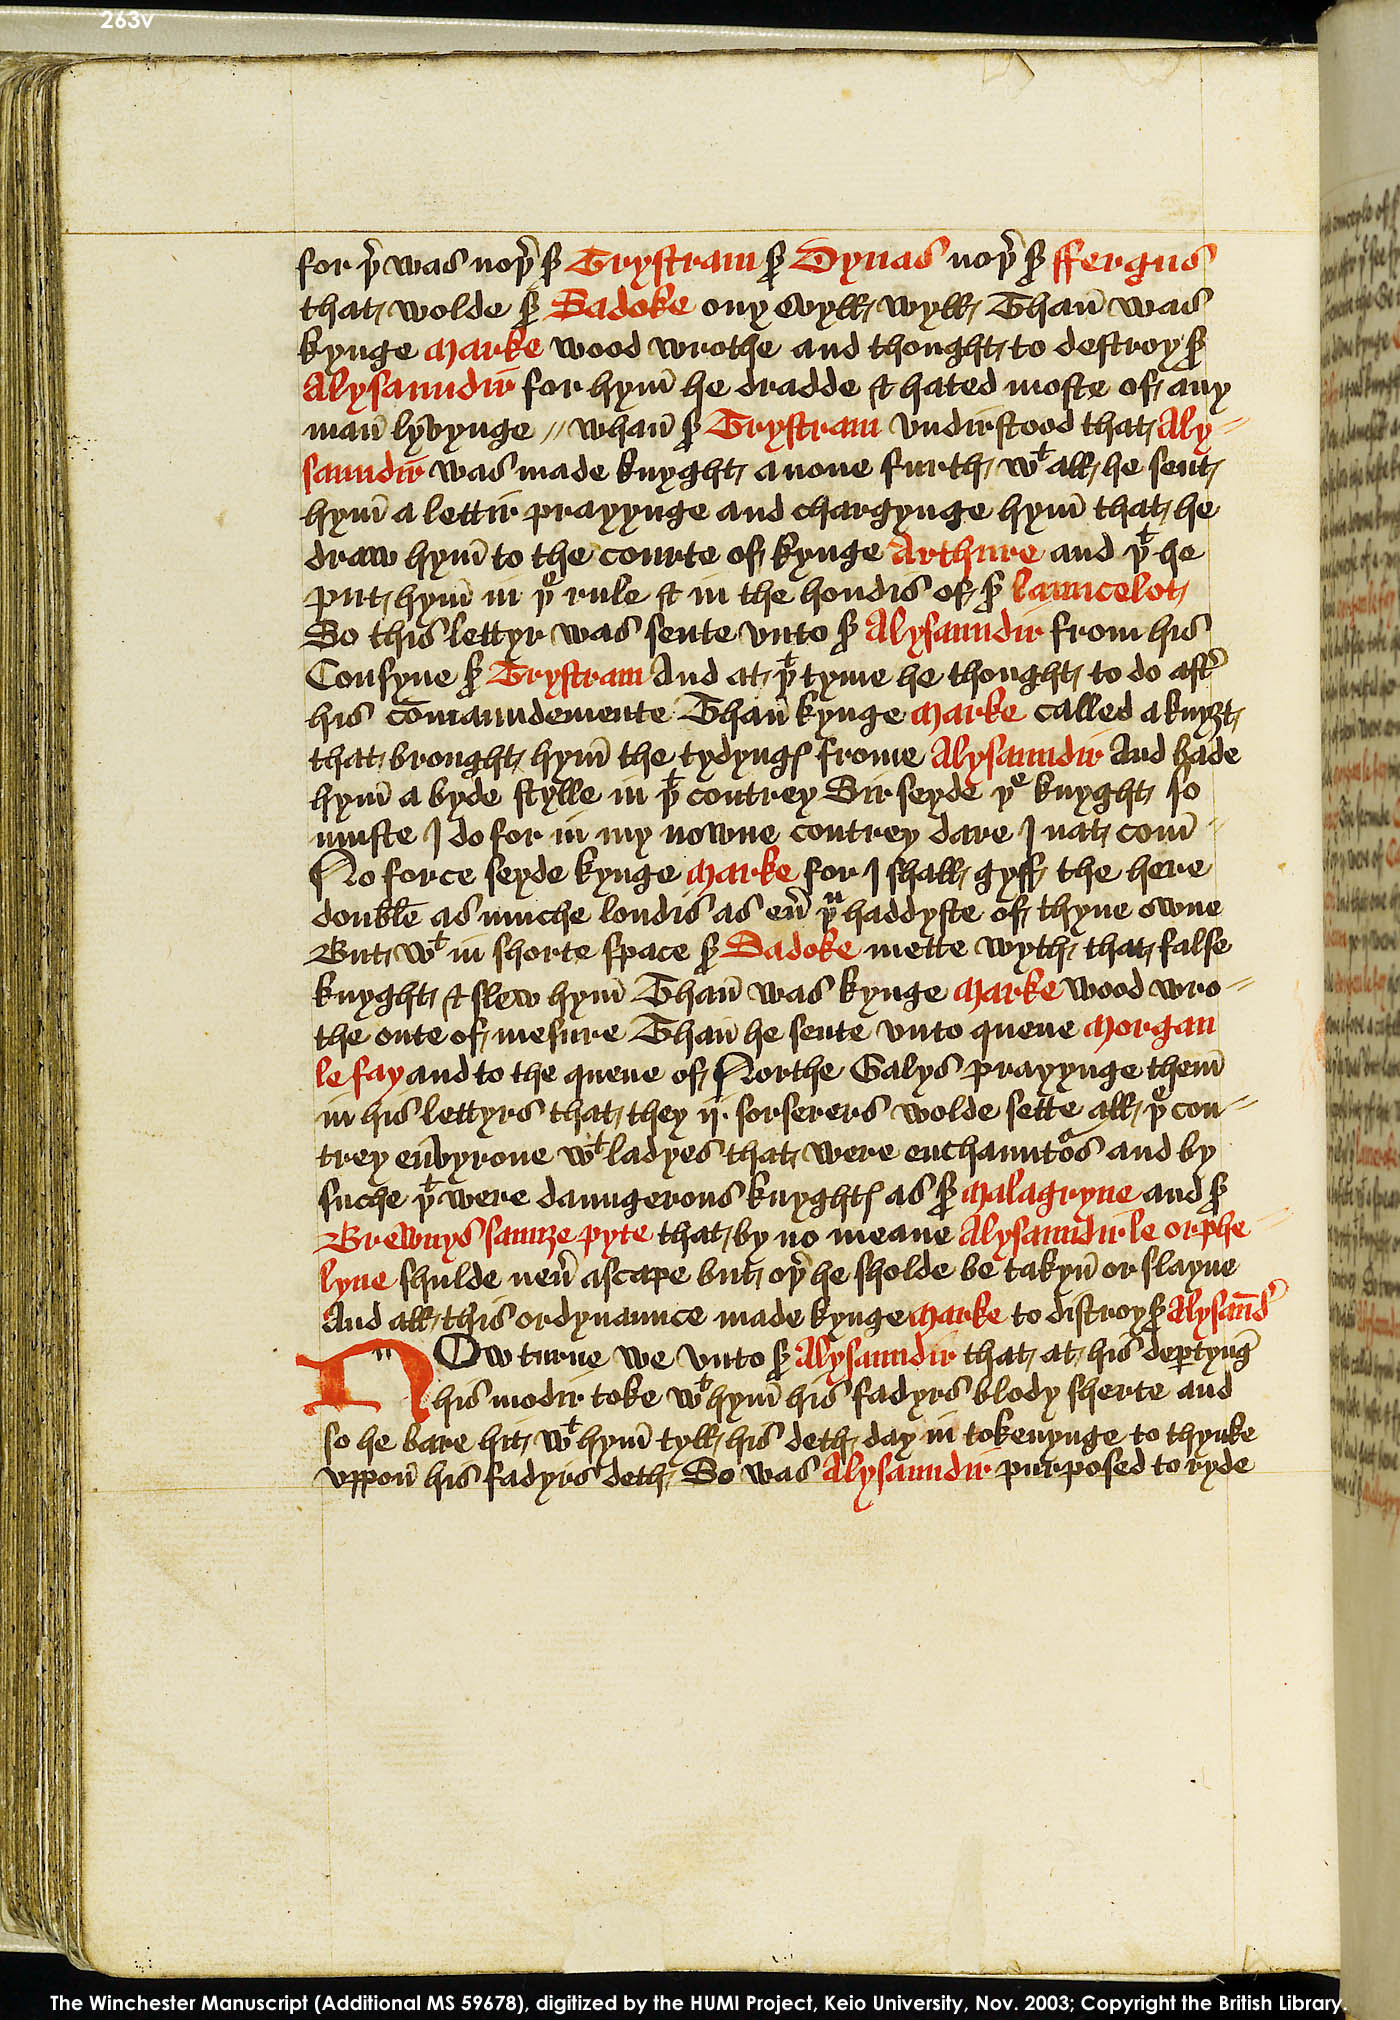 263v
for þ̉ was noþ̉ ẜ Trystram ẜ Dynas noþ̉ ẜ ffergus
that wolde ẜ Sadoke ony evyll wyll Than̄ was
kynge Marke wood wrothe and thought to destroy ẜ
Alysaundir for hym̄ he dradde & hated moste of any
man̄ lyvynge // whan̄ ẜ Trystram vndirstood that Aly-
saundir was made knyght anone furth wᵗ all he sent
hym̄ a lettir prayynge and chargynge hym̄ that he
draw hym̄ to the courte of kynge Arthure and yᵗ he
put hym̄ in yᵉ rule & in the hondis of ẜ launcelot
So this lettyr was sente vnto ẜ Alysaundir from his
Cousyne ẜ Trystram And at yᵗ tyme he thought to do aft̉
his com̄aundemente Than̄ kynge Marke called a knyȝt
that brought hym̄ the tydyngꝭ frome Alysaundir And bade
hym̄ a byde stylle in yᵗ contrey Sir seyde yᵉ knyght so
muste I do for in my nowne contrey dare I nat com̄
No force seyde kynge Marke for I shall gyff the here
double as muche londis as eủ yᵘ haddyste of thyne owne
But wᵗ in shorte space ẜ Sadoke mette wyth that false
knyght & slew hym̄ Than̄ was kynge Marke wood wro-
the oute of mesure Than̄ he sente vnto quene Morgan
le fay and to the quene of Northe Galys prayynge them̄
in his lettyrs that they ij sorserers wolde sette all yᵉ con-
trey envyrone wᵗ ladyes that were enchauntoͬs and by
suche yᵗ were daungerous knyghtꝭ as ẜ Malagryne and ẜ
Brewnys saunze pyte that by no meane Alysaundir le orphe-
lyne shulde neủ ascape but oþ̉ he sholde be takyn̄ or slayne
And all this ordynaunce made kynge Marke to distroy ẜ Alysand̉
n NOw turne we vnto ẜ Alysaundir that at his deꝑtynḡ
his modir toke wᵗ hym̄ his fadyrs blody sherte and
so he bare hit wᵗ hym̄ tyll his deth day in tokenynge to thynke
vppon̄ his fadyrs deth So was Alysaundir purposed to ryde
The Winchester Manuscript (Additional MS 59678), digitized by the HUMI Project, Keio University, Nov. 2003; Copyright the British Library.